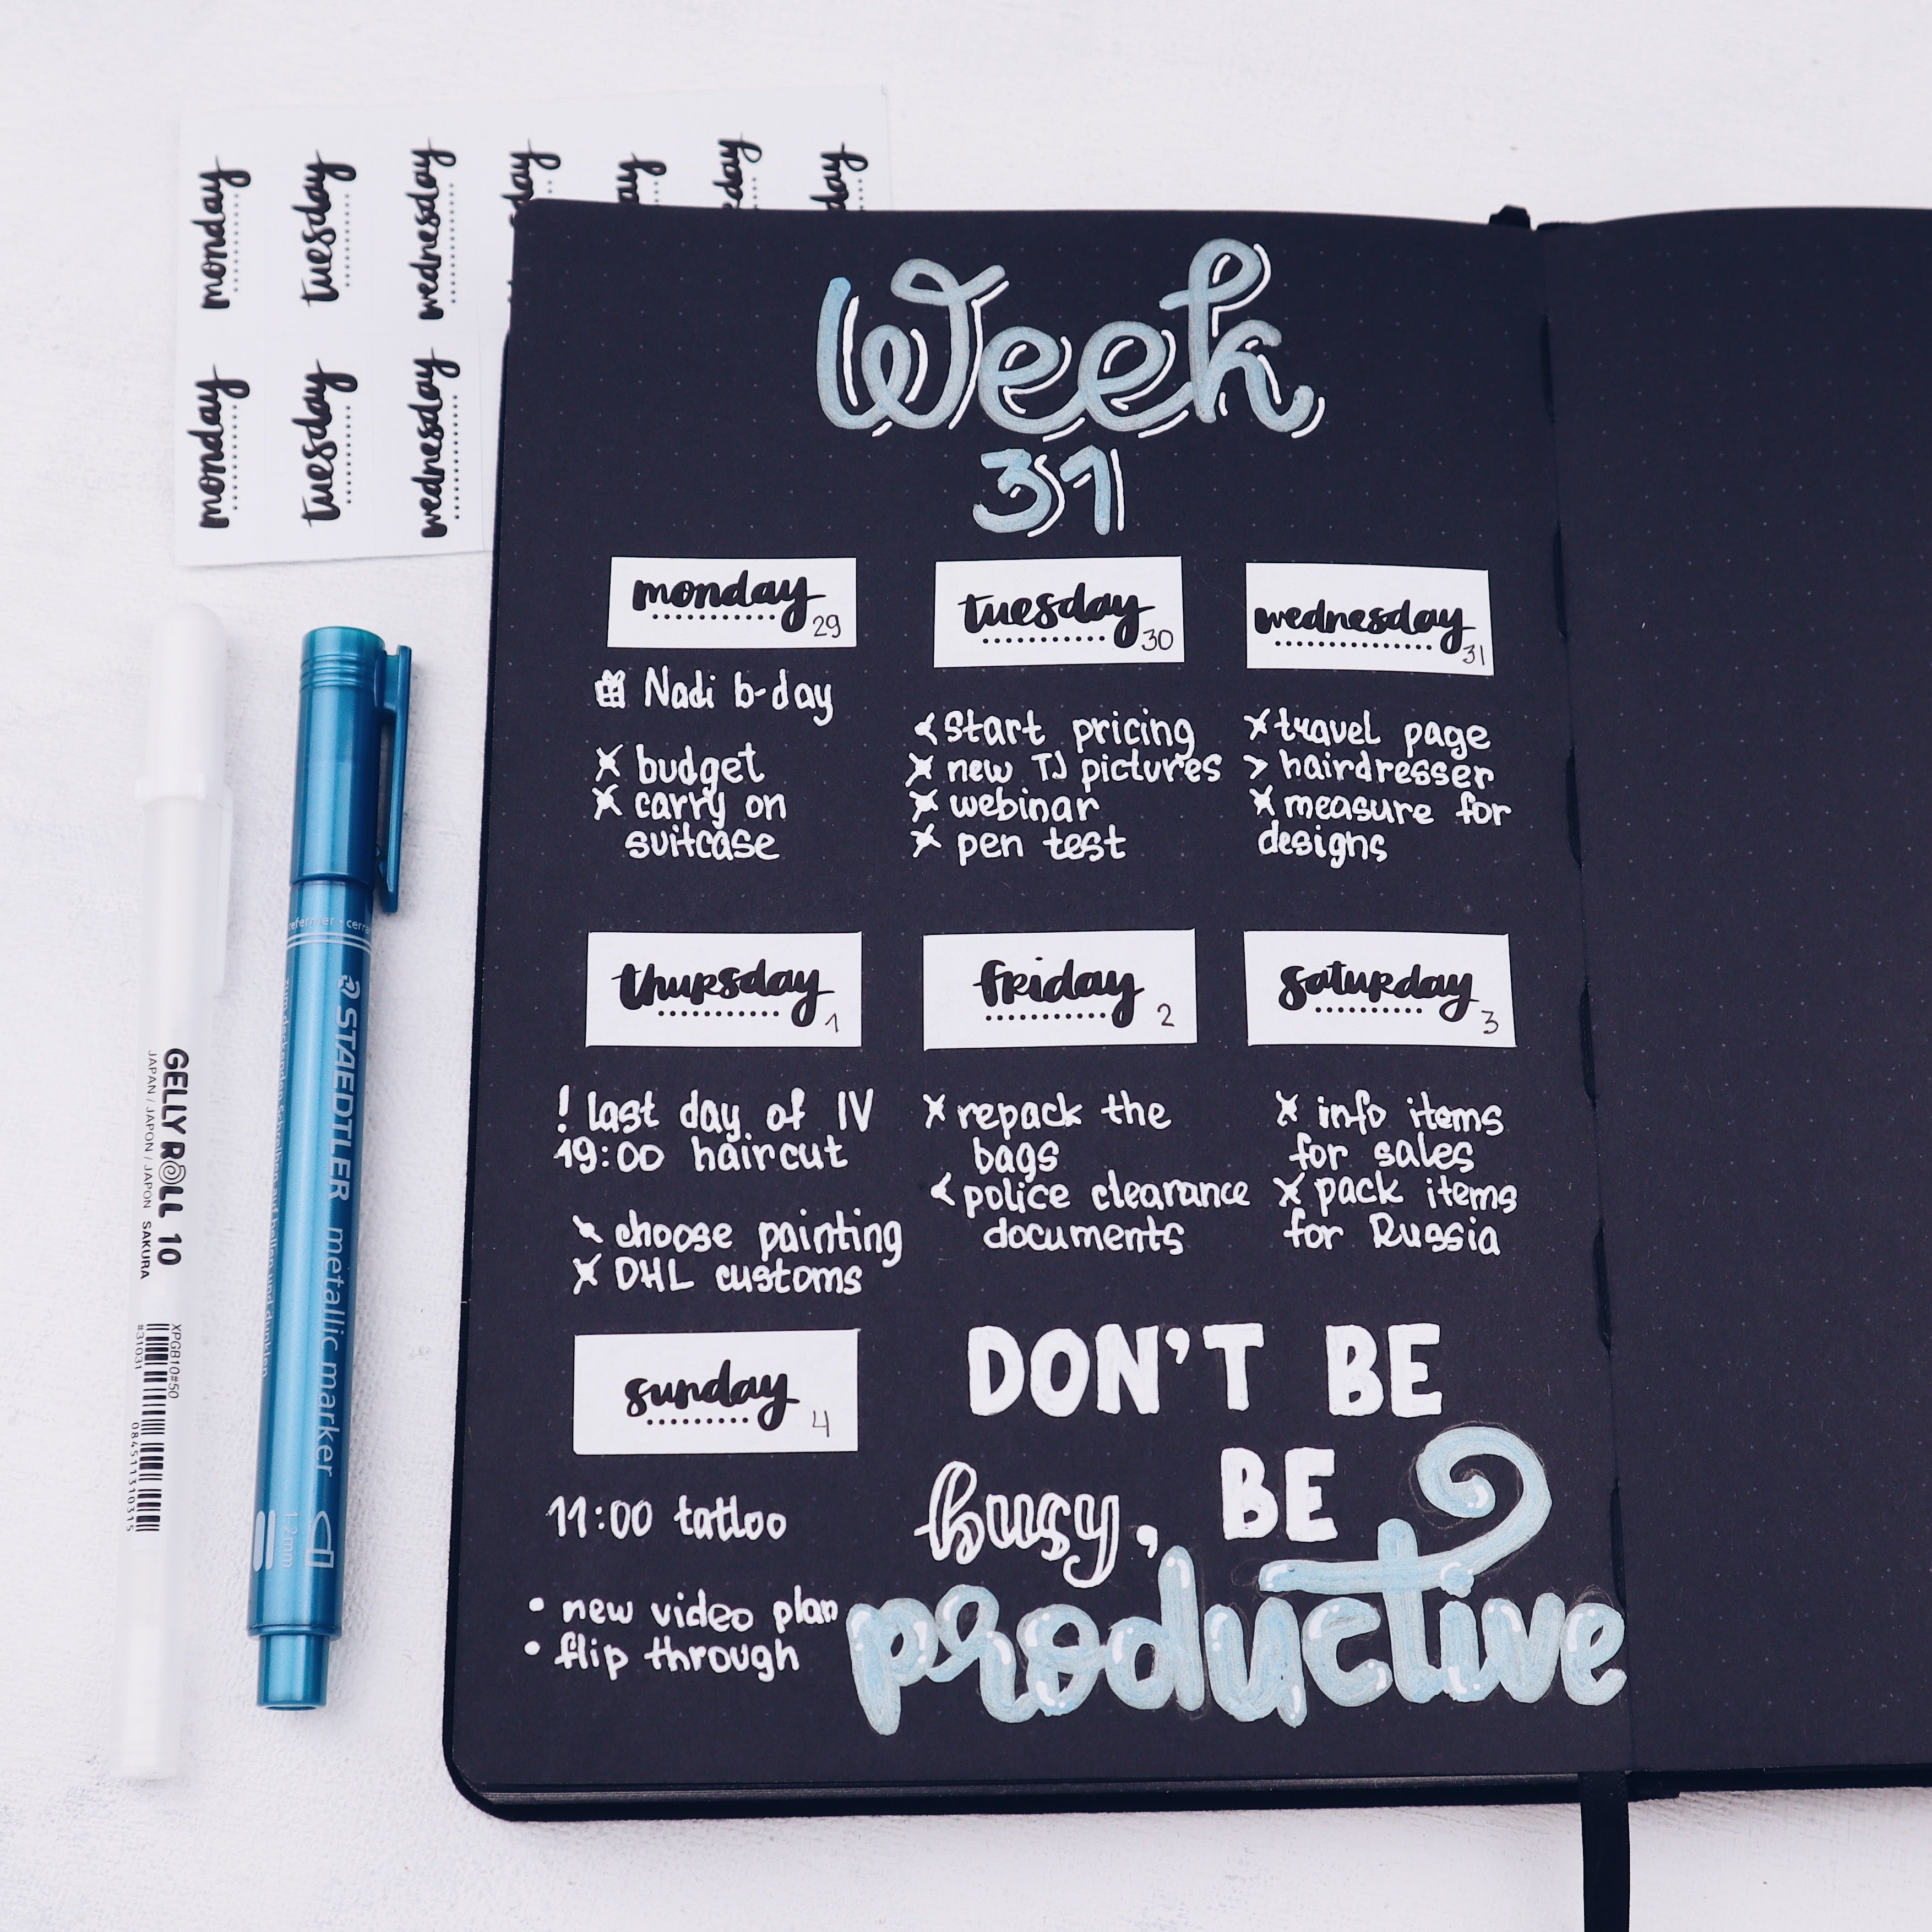 monday
tuesday
wednesday
monday
tuesday
wednesday
Week
31
monday 29
Nadi b-day
x budget
x carry on
suitcase
tuesday 30
< start pricing
x new TJ pictures
x webinar
x pen test
wednesday 31
x travel page
> hairdresser
x measure for
designs
thursday 1
! last day of IV
19:00 haircut
\ choose painting
x DHL customs
friday 2
x repack the
bags
< police clearance
documents
saturday 3
x info items
for sales
x pack items
for Russia
sunday 4
11:00 tattoo
• new video plan
• flip through
DON'T BE
busy, BE
productive
GELLY ROLL 10
JAPAN / JAPON / JAPÓN SAKURA
XPGB10#50
#31031
084511310315
STAEDTLER metallic marker
1.2mm